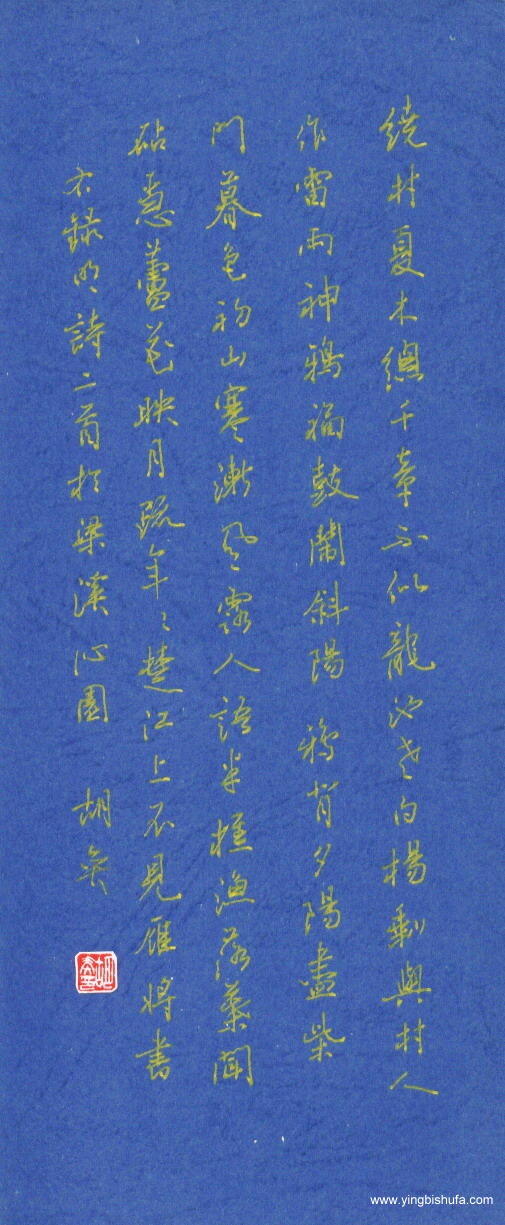 繞村夏木總千章不似龍池老白楊剩與村人
作雷雨神鴉福鼓鬧斜陽 鴉背夕陽盡柴
門暮色初山寒漸風露人語半樵漁落葉聞
砧急蘆花映月疏年々楚江上不見雁將書
右錄明詩二首於梁溪沁園 胡
www.yingbishufa.com